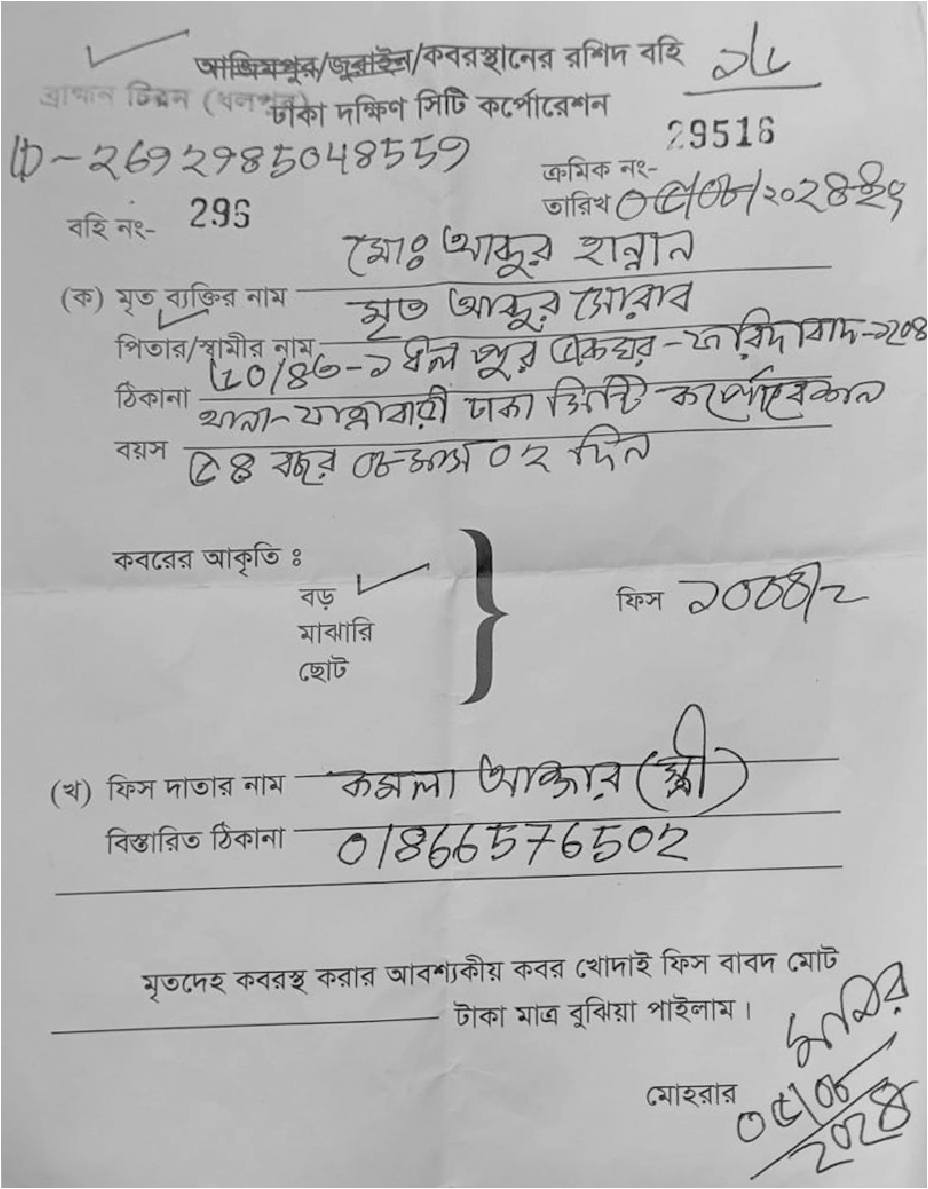 আজিমপুর/জুরাইন/কবরস্থানের রশিদ বহি
ঢাকা দক্ষিণ সিটি কর্পোরেশন
ID-2692985048559
29516
ক্রমিক নং-
তারিখ ০৫/০৮/২০২৪ইং
বহি নং- 296
মোঃ আব্দুর হান্নান
(ক) মৃত ব্যক্তির নাম
মৃত আব্দুর সোরাব
পিতার/স্বামীর নাম
ধলপুর ফরিদাবাদ-১২০৪
ঠিকানা
থানা-যাত্রাবাড়ী ঢাকা সিটি কর্পোরেশন
বয়স ৫৪ বছর ০৮ মাস ০২ দিন
কবরের আকৃতি ঃ
বড়
মাঝারি
ছোট
ফিস
(খ) ফিস দাতার নাম কমলা আক্তার (স্ত্রী)
বিস্তারিত ঠিকানা 01866576502
মৃতদেহ কবরস্থ করার আবশ্যকীয় কবর খোদাই ফিস বাবদ মোট
টাকা মাত্র বুঝিয়া পাইলাম।
মোহরার
০৫/০৮/২০২৪